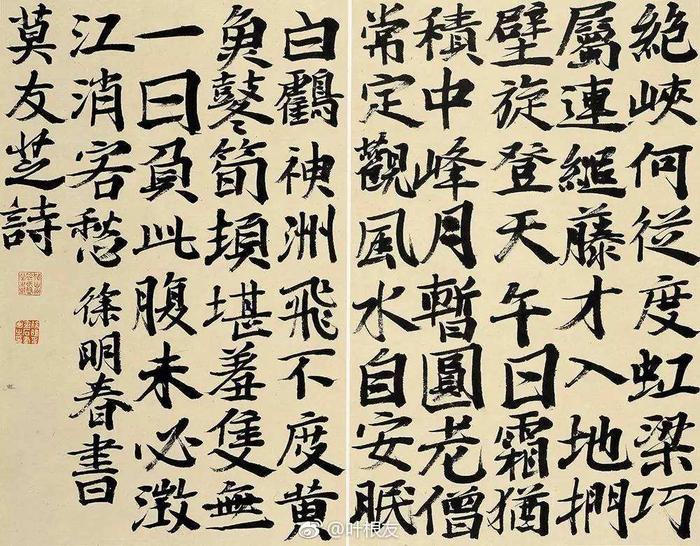 絕峽何從度虹梁巧
屬連緪藤才入地捫
壁旋登天午日霜猶
積中峰月暫圓老僧
常定觀風水自安眠
白鸛神洲飛不度黄
魚鼕筍頓堪羞隻無
一日負此腹未必澂
江消客愁 徐明春書
莫友芝詩
@叶根友